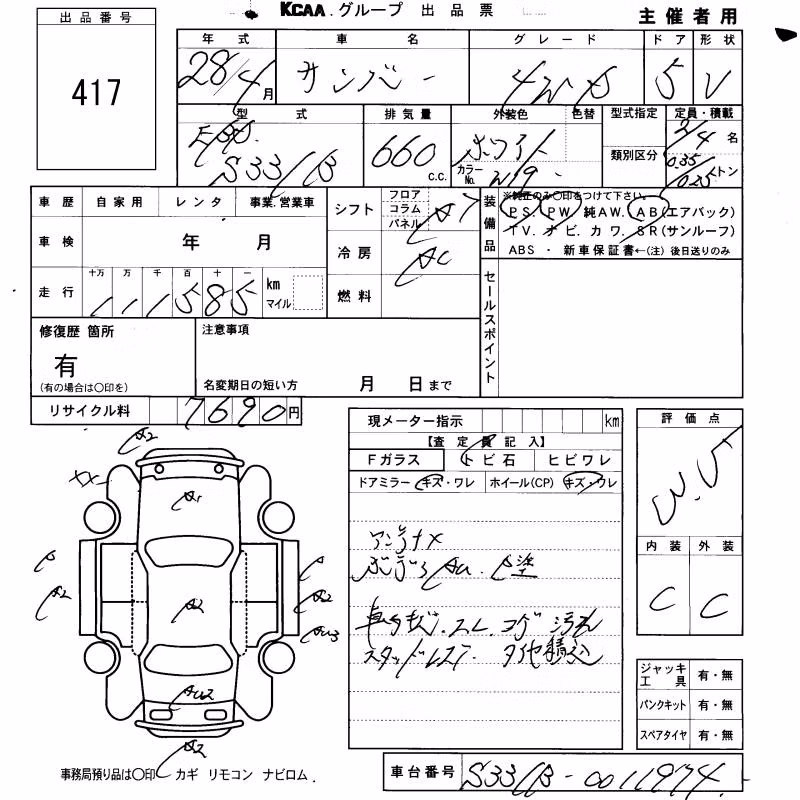 KCAA.グループ 出品票
主催者用
出品番号
417
年式 車名 グレード ドア 形状
28/4月 サンバー 4WD 5 V
型式 排気量 外装色 色替 型式指定 定員・積載
EBD
S331B 660 c.c. ホワイト
カラーNo. W19
類別区分
2/4名
0.35/0.25トン
車歴 自家用 レンタ 事業.営業車
シフト フロア コラム パネル AT
車検 年 月
冷房 AC
走行 十万 万 千 百 十 一
111585 km マイル
燃料
装備品
※純正のみ○印をつけて下さい。
PS. PW. 純AW. AB(エアバック)
TV. ナビ. カワ. SR(サンルーフ)
ABS ・ 新車保証書←(注) 後日送りのみ
セールスポイント
修復歴 箇所
有
(有の場合は○印を)
注意事項
名変期日の短い方 月 日まで
リサイクル料 7690円
現メーター指示 km
【査定員記入】
Fガラス トビ石 ヒビワレ
ドアミラー キズ・ワレ ホイール(CP) キズ・ワレ
アンテナX
車内キズ. スレ. コゲ 汚れ
スタッドレス タイヤ積込
評価点
3.5
内装 外装
C C
A2
XX
A1
A2
A2
A2
AU3
AU2
A2
ジャッキ工具 有・無
パンクキット 有・無
スペアタイヤ 有・無
事務局預り品は○印 カギ リモコン ナビロム.
車台番号 S331B-0011974